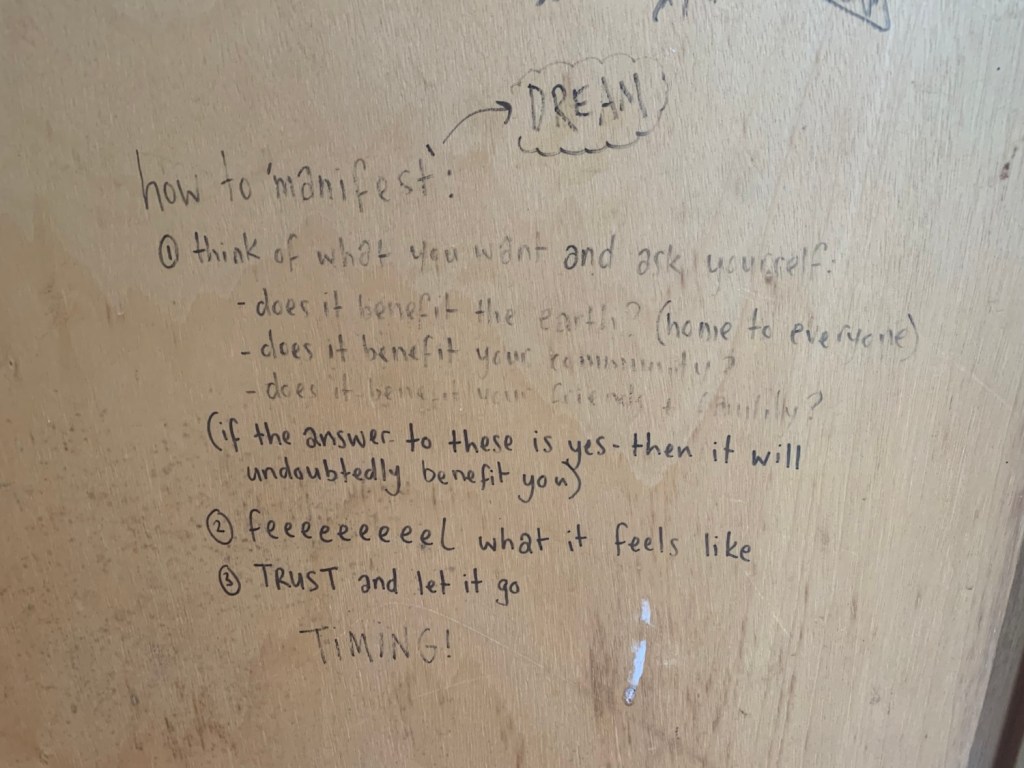 DREAM
how to 'manifest':
① think of what you want and ask yourself:
- does it benefit the earth? (home to everyone)
- does it benefit your community?
- does it benefit your friends +
(if the answer to these is yes - then it will
undoubtedly benefit you)
② feeeeeeeeel what it feels like
③ TRUST and let it go
TiMING!